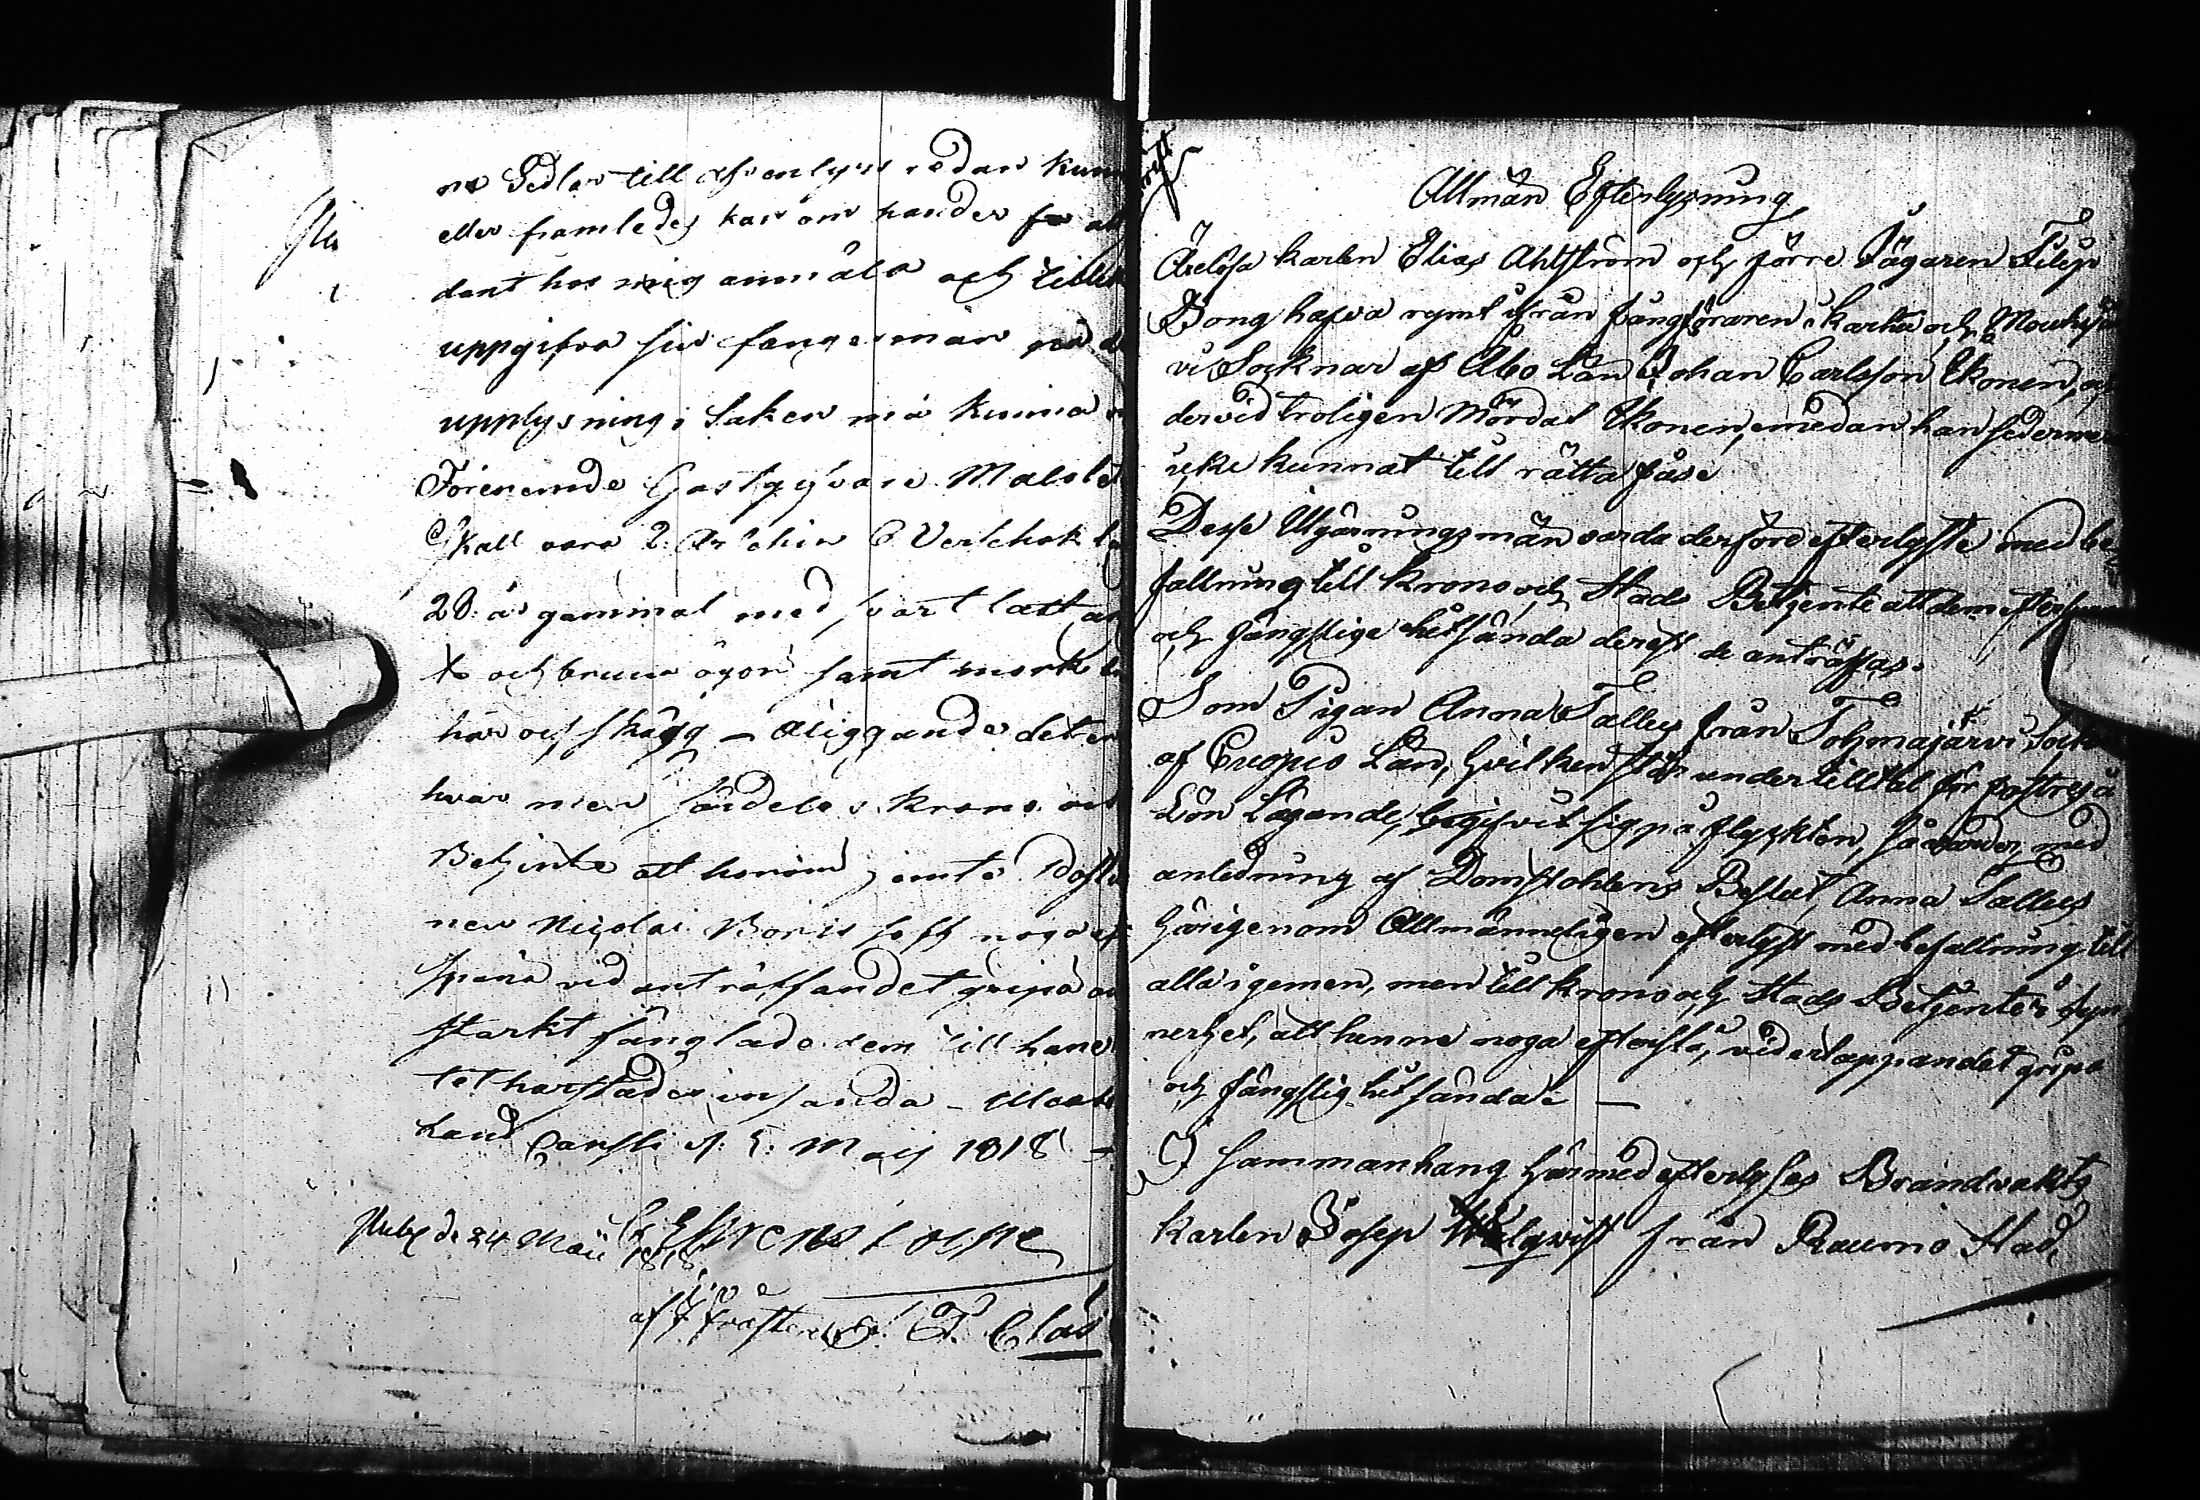 ne Sedlar till äfventyrs redan kun
eller framledes kan om händer få at
dant hos mig anmäla och tillika
uppgifva sin fångesman på d
upplysning i saken må kunna
Förenemde Gästgifvare
Skall vara 2 Arschin 6 Verschok lå
28 år gammal med svart lätt an
te och bruna ögon samt mörk b
hår och skägg – åliggande det en
hvar men särdeles Krono och
Betjente att honom jemte
nen Nicolai Borissoff noga ef
spana vid anträffandet gripa oc
starkt fänglade dem till hane
tet härstädes insända –
Landt Cansli d. 5 Maij 1818 –
Publ. d. 24 Maii 1818
af J. F. Clás
Allmän Efterlysning
Ärelösa karlen Elias Ahlström och förre Jägaren Filip
Bong hafva rymt ifrån fångföraren i Karkku och Mouhijär
vi Socknar af Åbo Län Johan Carlsson Ikonen, och
dervid troligen Mördat Ikonen, emedan han sederme
icke kunnat till rätta fåss
Desse Ogärningsmän varda derföre efterlyste med be
fallning till Krono och Stads Betjente att dem efterspana
och fängslige hitsända derest de anträffas.
Som Pigan Anna Talley från Tohmajärvi Sock
af Cuopio Län, hvilken står under tilltal för fostrets å
Lön Läggande, begifvit sig på flyckten, så varder, med
anledning af Domstolens Beslut, Anna Talley
härigenom Allmänneligen efterlyst med befallning till
alla i gemen, men till krono och Stads Betjente i syn
nerhet, att henne noga eftersla, vid ertappandet gripa
och fängslig hitsända –
I sammanhang härmed efterlyses Brandvakts
karlen Josep från Raumo Stad,